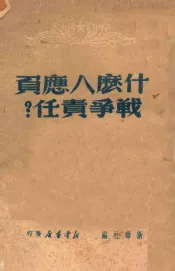 什麼人應負
戰爭責任?
新華社編
新華書店發行